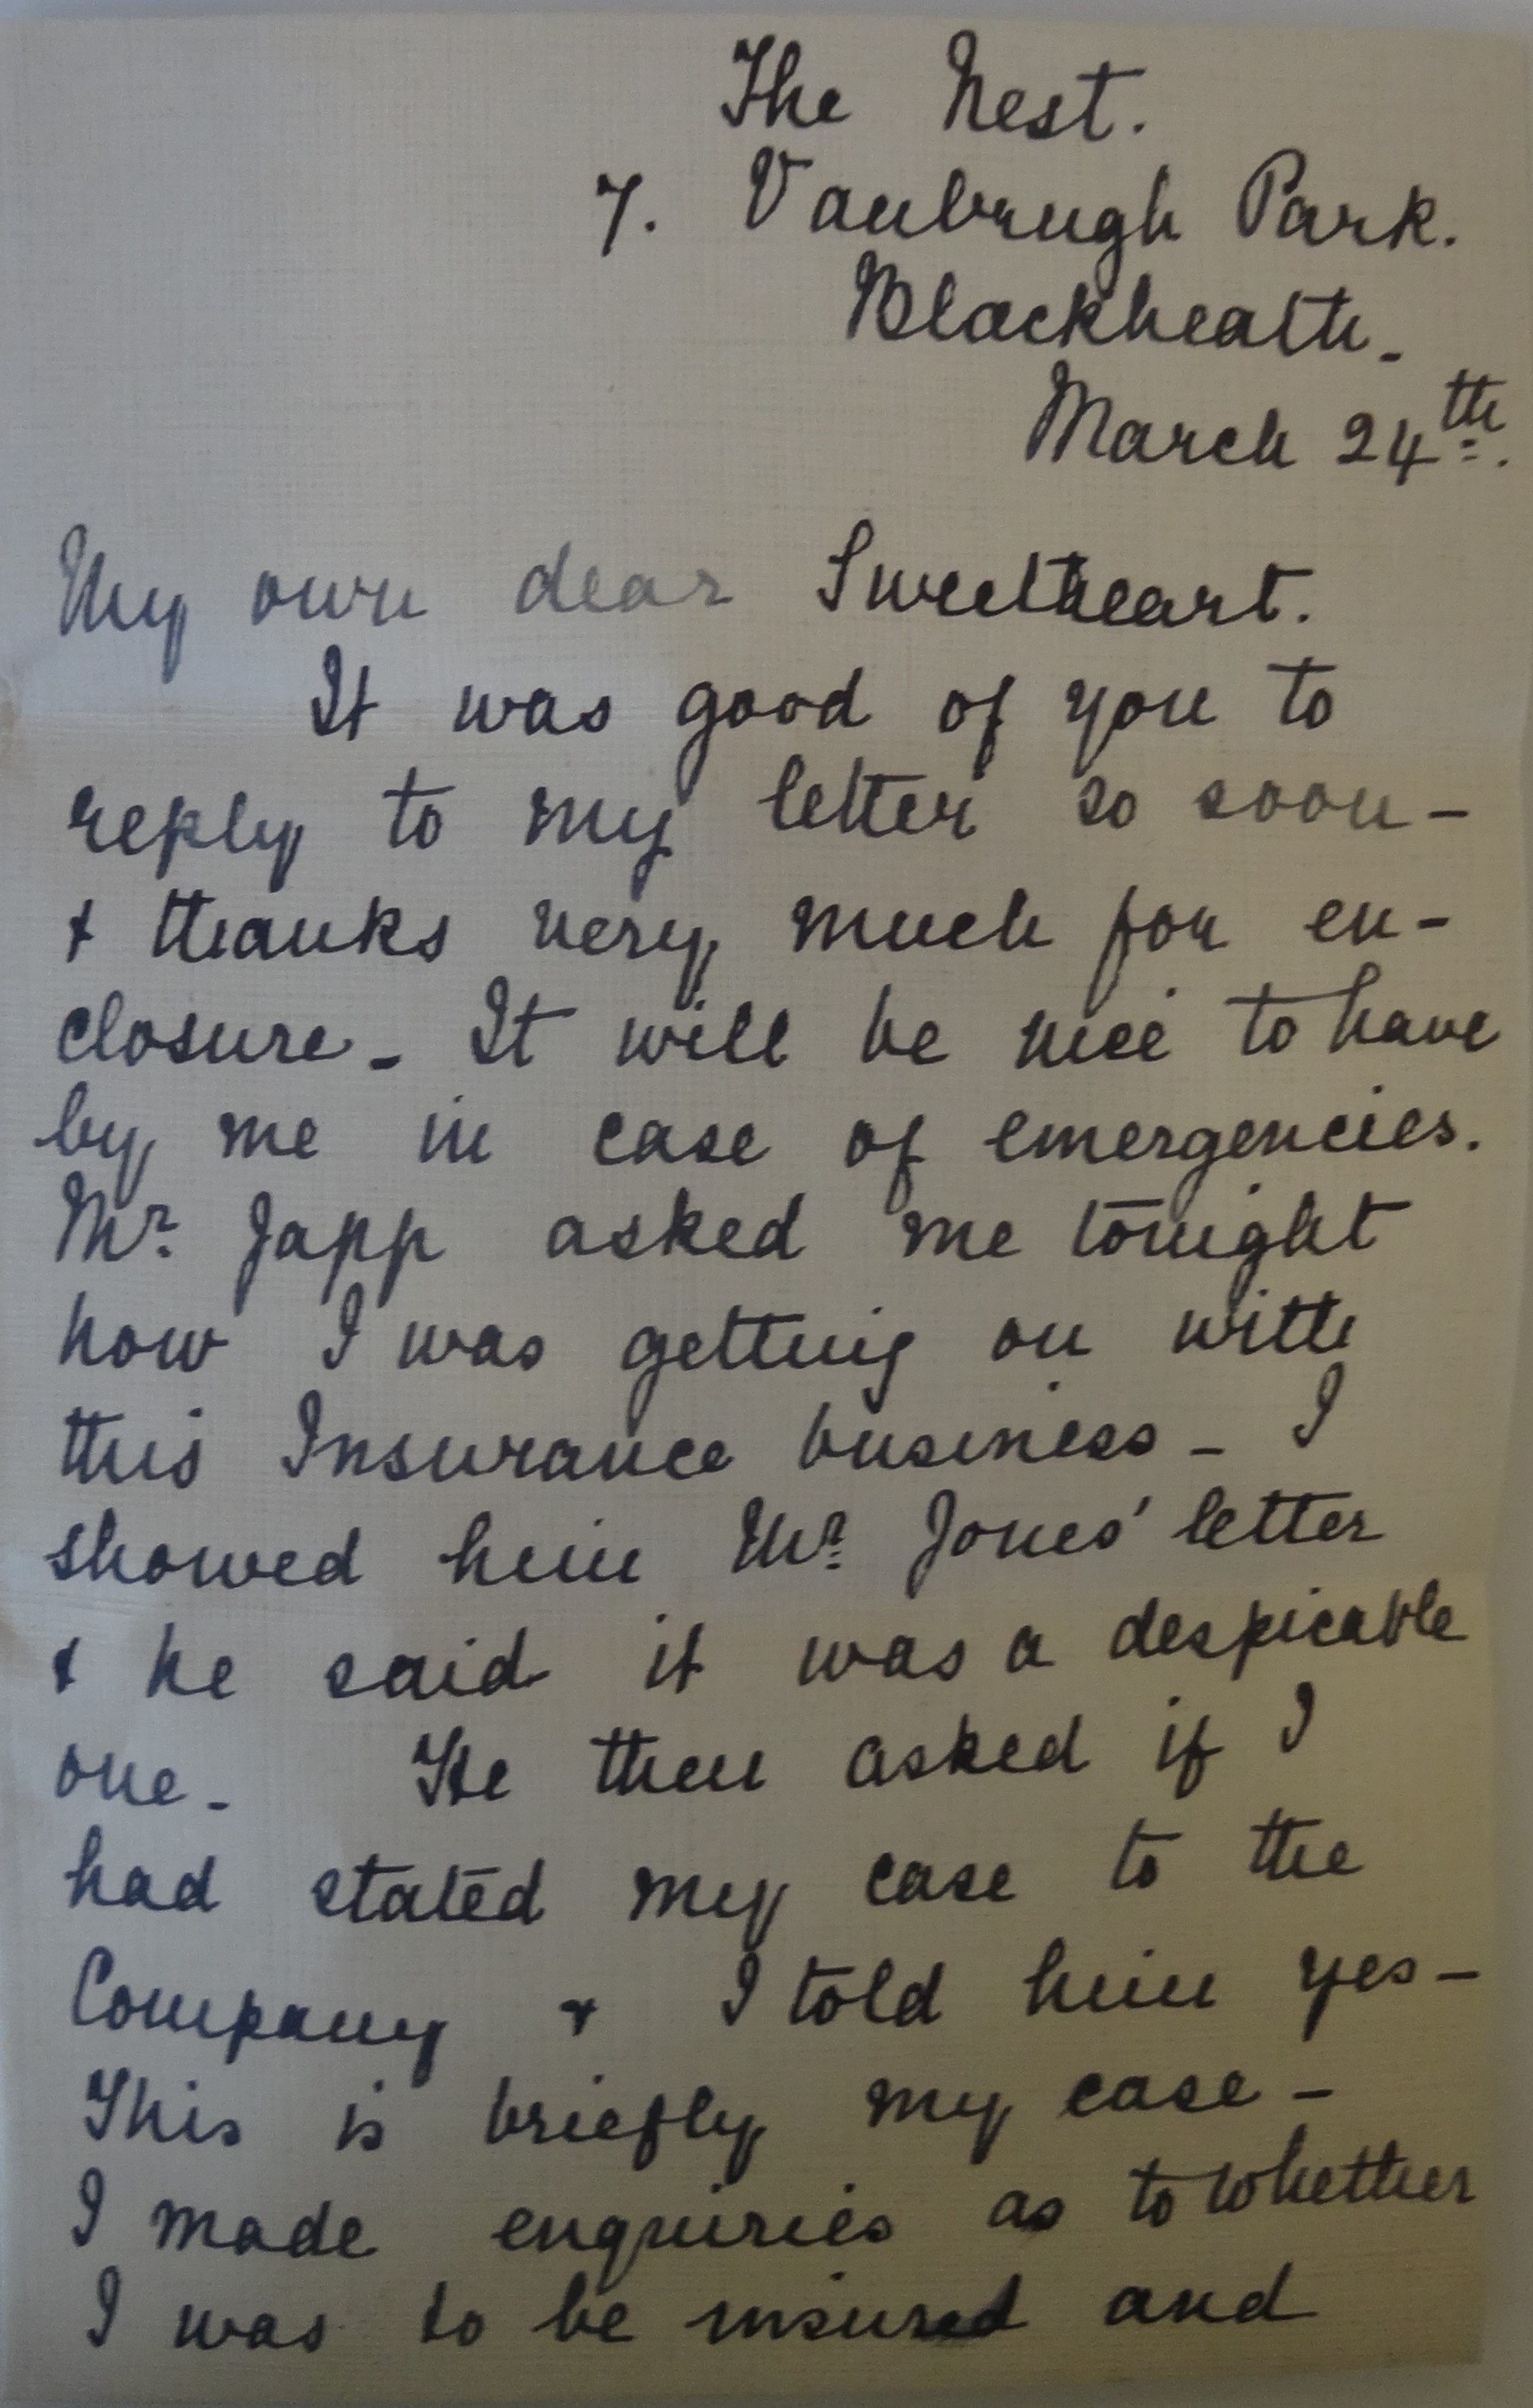 The Nest.
7. Vanbrugh Park.
Blackheath_
March 24th.
My own dear Sweetheart.
It was good of you to
reply to my letter so soon -
& thanks very much for en-
closure _ It will be nice to have
by me in case of emergencies.
Mr. Japp asked me tonight
how I was getting on with
this Insurance business _ I
showed him Mr. Jones' letter
& he said it was a despicable
one _ He then asked if I
had stated my case to the
Company & I told him yes -
This is briefly my case -
I made enquiries as to whether
I was to be insured and